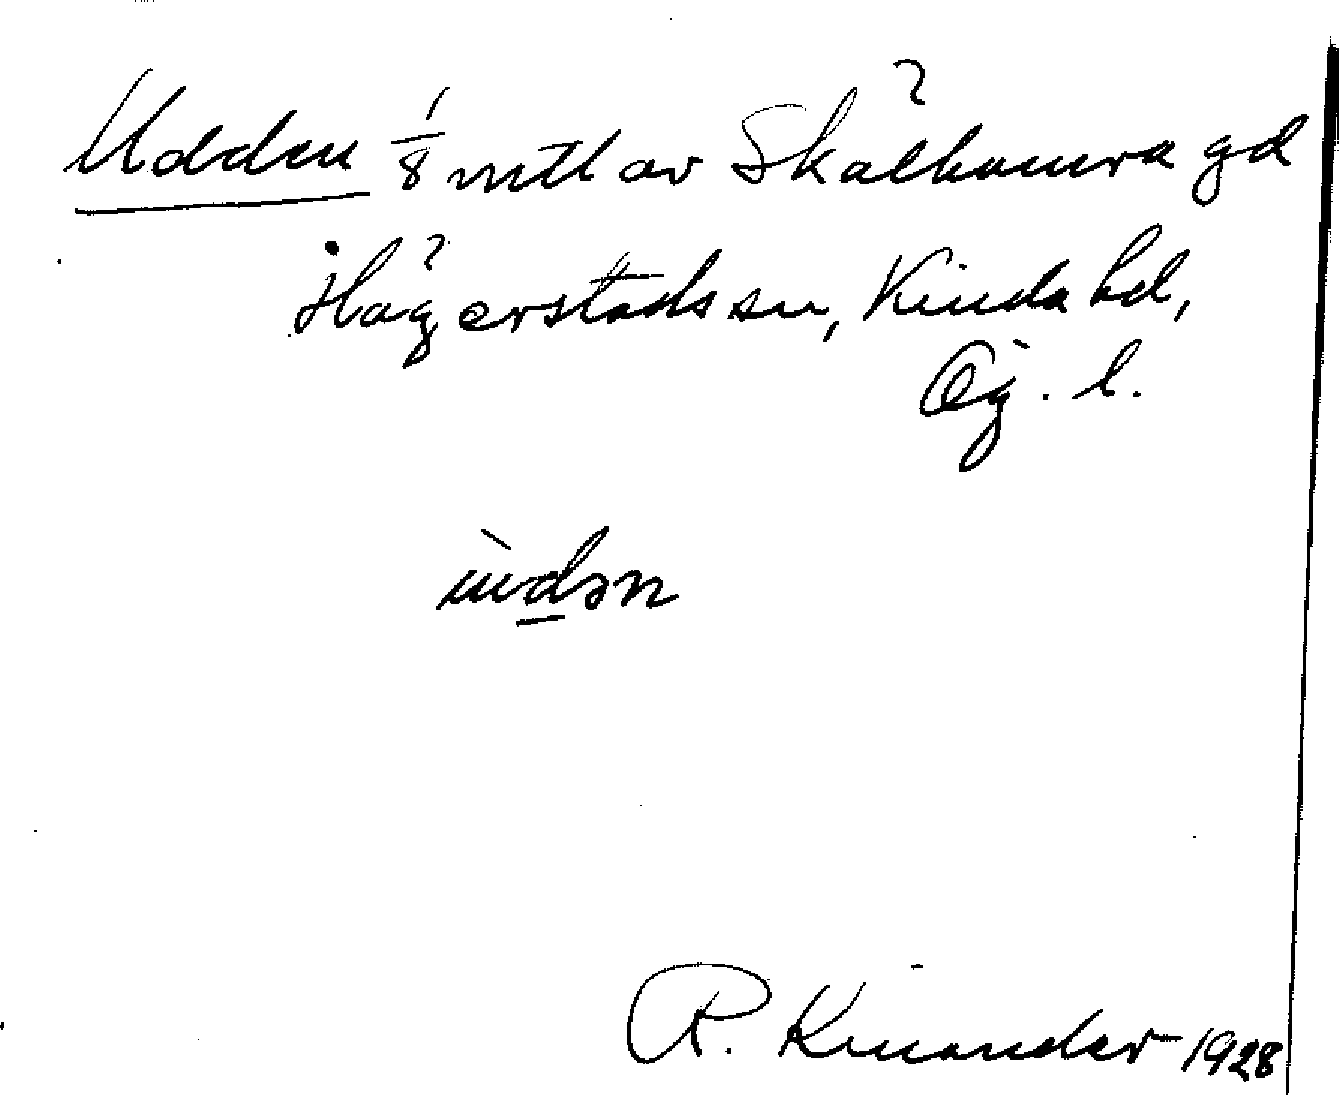 Udden 1/8 mtl av Skälhamra gd
i Hägerstads sn, Kinda hd,
Ög. l.
ùdən
R. Kinander 1928